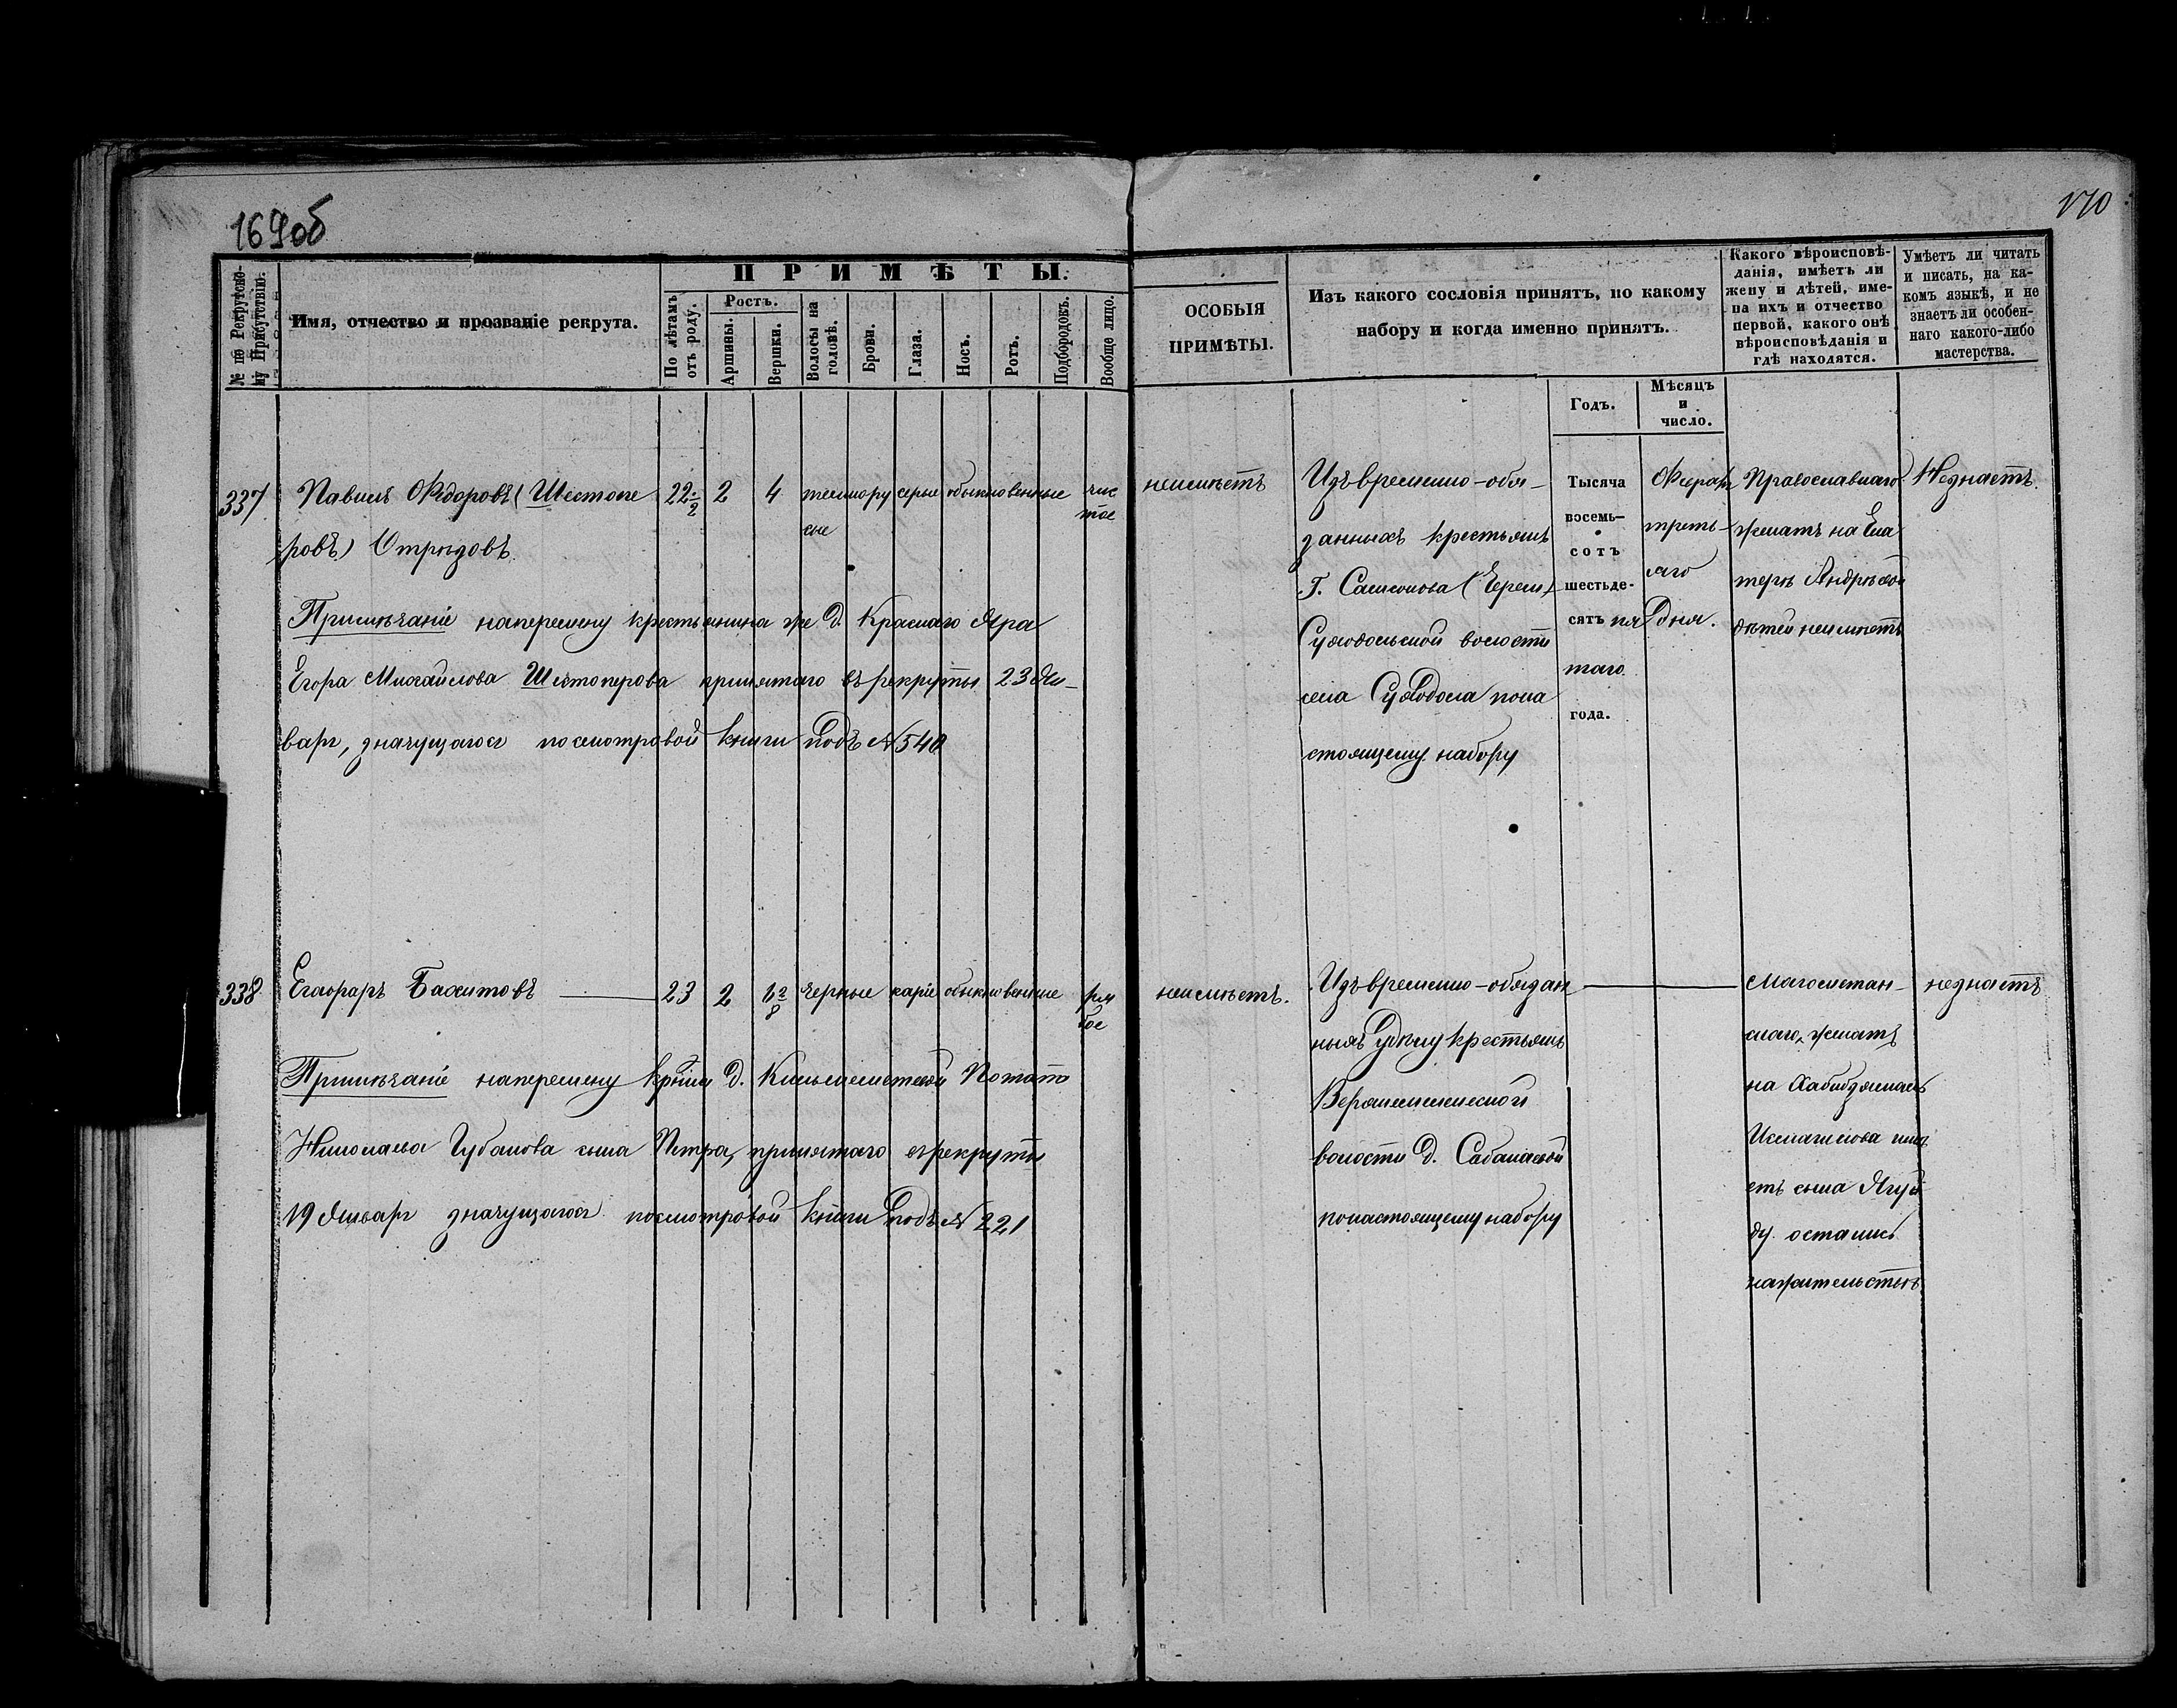 169об
170
№ по Рекрутско-
му Присутствію.
Имя, отчество и прозваніе рекрута.
ПРИМѢТЫ.
По лѣтамъ
отъ роду.
Ростъ.
Аршины.
Вершки.
Волосы на
головѣ.
Брови.
Глаза.
Носъ.
Ротъ.
Подбородокъ.
Вообще лицо.
ОСОБЫЯ
ПРИМѢТЫ.
Изъ какого сословія принятъ, по какому
набору и когда именно принятъ.
Годъ.
Мѣсяцъ
и
число.
Какого вѣроисповѣ-
данія, имѣетъ ли
жену и дѣтей, име-
на ихъ и отчество
первой, какого онѣ
вѣроисповѣданія и
гдѣ находятся.
Умѣетъ ли читать
и писать, на ка-
комъ языкѣ, и не
знаетъ ли особен-
наго какого-либо
мастерства.
337
Павелъ Ѳедоровъ (Шестопе
ровъ) Отрѣзовъ.
22 1/2
2
4
темнору
сые
серые
обыкновенные
чис
тое
Примѣчаніе наперемену крестьянина же д. Краснаго Яра
Егора Михайлова Шестоперова принятаго въ рекруты 23 Ян-
варя, значущагося посмотровой книги подъ № 540
неимѣетъ
Изъ временно-обя-
занныхъ крестьянъ
Г. Самсонова (Черем.)
Суходольской волости
села Суходола пона
стоящему набору
Тысяча
восемь-
сотъ
шестьде-
сятъ пя
таго
года.
Февраля
треть-
яго
Дня.
Православнаго
женатъ на Ека
терѣ Андрѣевой
дѣтей неимѣетъ
Незнаетъ.
338
Бахитовъ
23
2
6 2/8
черные
каріе
обыкновенные
ря
бое
Примѣчаніе наперемену д. Потапа
Николаева Губанова сына Петра, принятаго въ рекруты
19 Января значущагося посмотровой книги подъ № 221
неимѣетъ.
Изъ временно-обязан
ныхъ Удѣлу крестьянъ
волости д. Сабанаевой
понастоящему набору
магометан-
скаго, женатъ
на Хабибзямалъ
Исмагилова имѣ
етъ сына
остались
нажительствѣ
незнаетъ